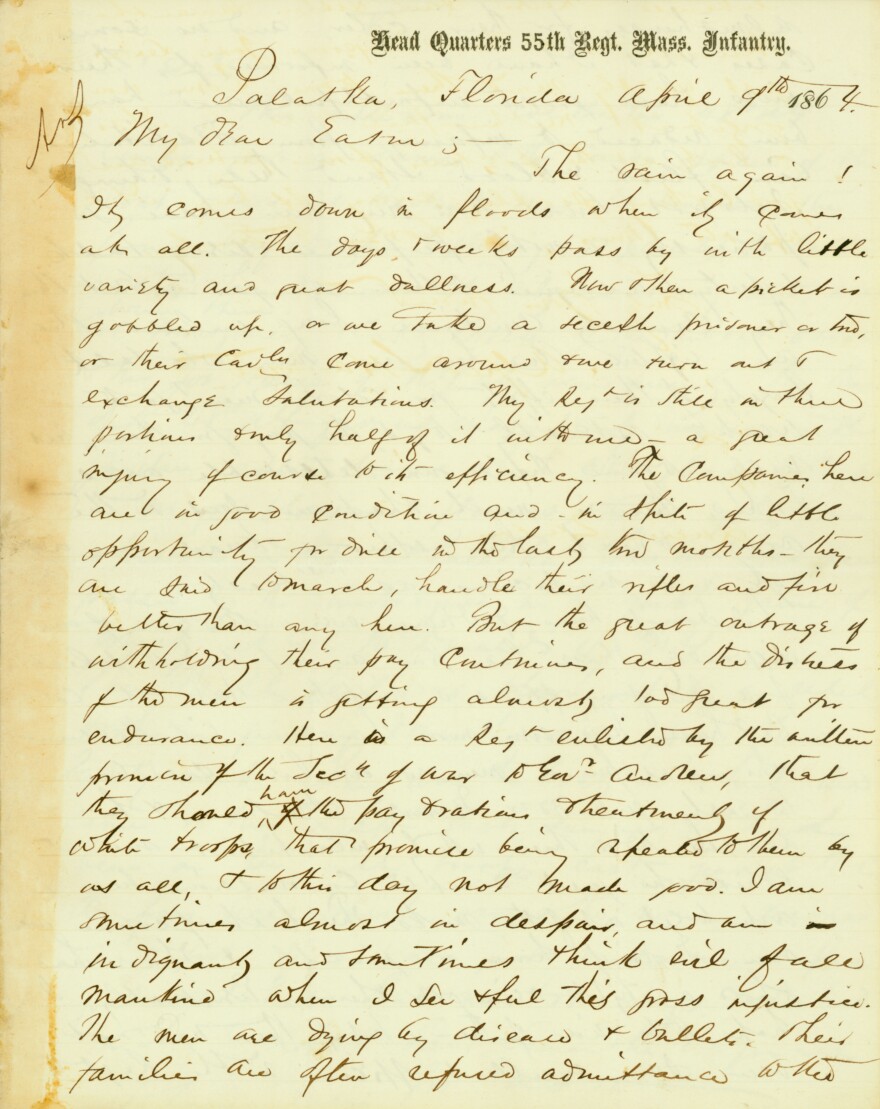 Head Quarters 55th Regt. Mass. Infantry.
Palatka, Florida April 9th 1864.
My dear Eaton ;—
The rain again !
It comes down in floods when it comes
at all. The days & weeks pass by with little
variety and great dullness. Now & then a picket is
gobbled up, or we take a secesh prisoner or two,
or their Cavly come around & we turn out to
exchange salutations. My Regt is still in three
portions & only half of it with me — a great
injury of course to its efficiency. The Companies here
are in good condition and - in spite of little
opportunity for drill in the last two months - they
are said to march, handle their rifles and fire
better than any here. But the great outrage of
withholding their pay continues, and the distress
of the men is getting almost too great for
endurance. Here is a Regt enlisted by the written
promise of the Secy of War to Govr Andrew, that
they should have the pay & rations & treatment of
white troops, that promise being repeated to them by
us all, & to this day not made good. I am
sometimes almost in despair, and am
indignant and sometimes think evil of all
mankind when I see & feel this gross injustice.
The men are dying by disease & bullets. Their
families are often refused admittance to the